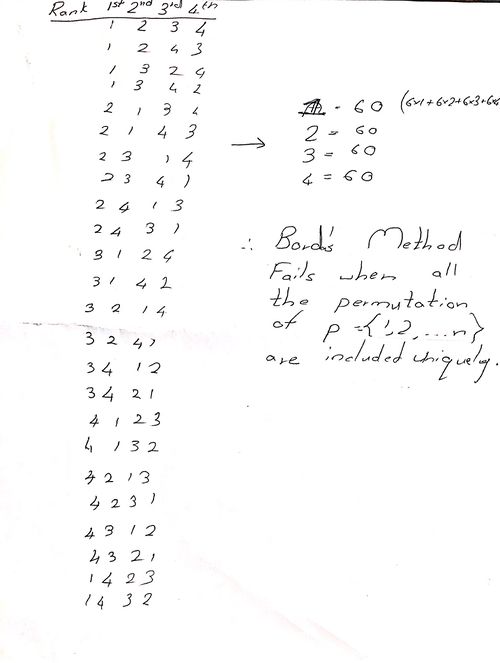 Rank 1st 2nd 3rd 4th
1 2 3 4
1 2 4 3
1 3 2 4
1 3 4 2
2 1 3 4
2 1 4 3
2 3 1 4
2 3 4 1
2 4 1 3
2 4 3 1
3 1 2 4
3 1 4 2
3 2 1 4
3 2 4 1
3 4 1 2
3 4 2 1
4 1 2 3
4 1 3 2
4 2 1 3
4 2 3 1
4 3 1 2
4 3 2 1
1 4 2 3
1 4 3 2
→
= 60 (6x1+6x2+6x3+6x4
2 = 60
3 = 60
4 = 60
∴ Borda's Method
Fails when all
the permutation
of p = {1,2,...n}
are included uniquely.